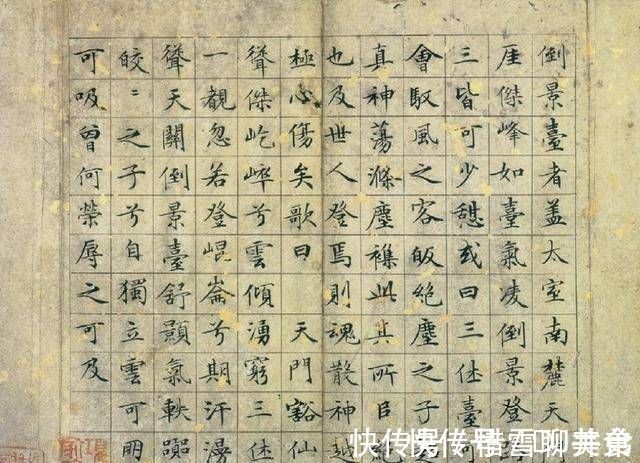 倒景臺者蓋太室南麓天
崖傑峰如臺氣凌倒景登
三皆可少憩或曰三休臺可
會馭風之客皈絕塵之子
真神蕩滌塵襟此其所
也及世人登焉則魂散神越
極心傷矣歌曰 天門豁仙
聳傑屹崒兮雲傾湧窮三休
一覿忽若登崐崙兮期汗漫
聳天關倒景臺舒顥氣軼
皎〻之子兮自獨立雲可朋
可吸曾何榮辱之可及
快传号